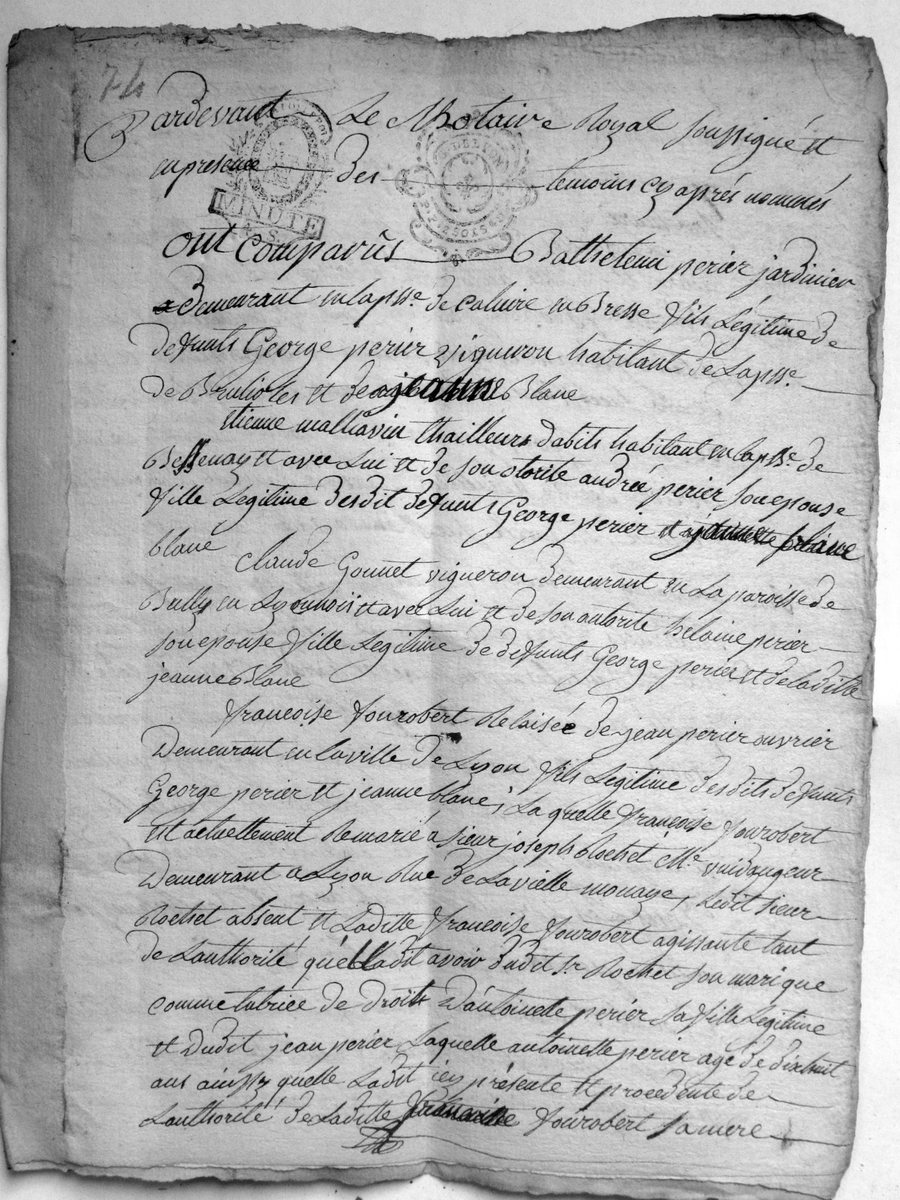 74
Pardevant Le Notaire Royal soussigné et
en presence des temoins cy après nommés
MINUTE
ont comparûs Bathelemi perier jardinier
demeurant en la psse. de caluire en Bresse fils Légitime de
defunts George perier vigneron habitant de La psse.
de Brulioles et de jeanne Blanc
Etienne malliavin thailleurs dabits habitant en la psse. de
Bessenay et avec Lui et de son otorité andrée perier son epouse
fille Légitime desdit defunt George perier et jeanne blanc
blanc
Claude Gonnet vigneron demeurant en La paroisse de
Bully en Lyonnois et avec Lui et de son autorité helaine perier
son epouse fille Legitime de defunts George perier et de laditte
jeanne Blanc
francoise fourobert Relaisée de jean perier ouvrier
Demeurant en la ville de Lyon fils Legitime desdits defunts
George perier et jeanne blanc; La quelle françoise fourobert
est actuellement Remarié à sieur joseph Rochet Me. vuidangeur
Demeurant a Lyon Rue de La vielle monaye, Ledit sieur
Rochet absent et Laditte francoise fourobert agissante tant
de Lauthorité quelle dit avoir dudit Sr. Rochet son mari que
comme tutrice de droits D'antoinette perier sa fille Legitime
et Dudit jean perier Laquelle antoinette perier agé de dixhuit
ans ainssy quelle Ladit icy présente et procedente de
Lauthorité de Laditte francoise fourobert sa mere